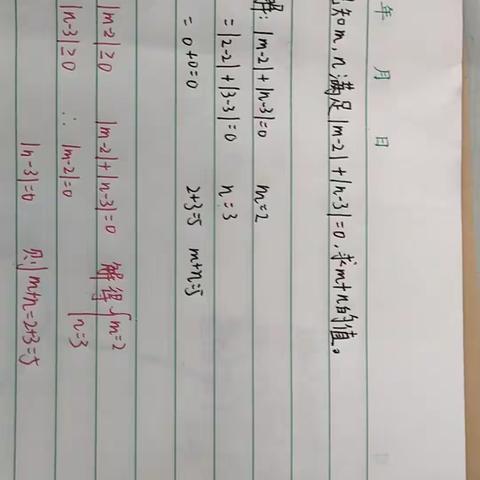 年 月 日
已知m,n满足|m-2|+|n-3|=0,求m+n的值。
解:|m-2|+|n-3|=0 m=2
=|2-2|+|3-3|=0 n=3
=0+0=0 2+3=5 m+n=5
|m-2|≥0 |m-2|+|n-3|=0 解得{m=2
|n-3|≥0 ∴ |m-2|=0 n=3
|n-3|=0 则m+n=2+3=5